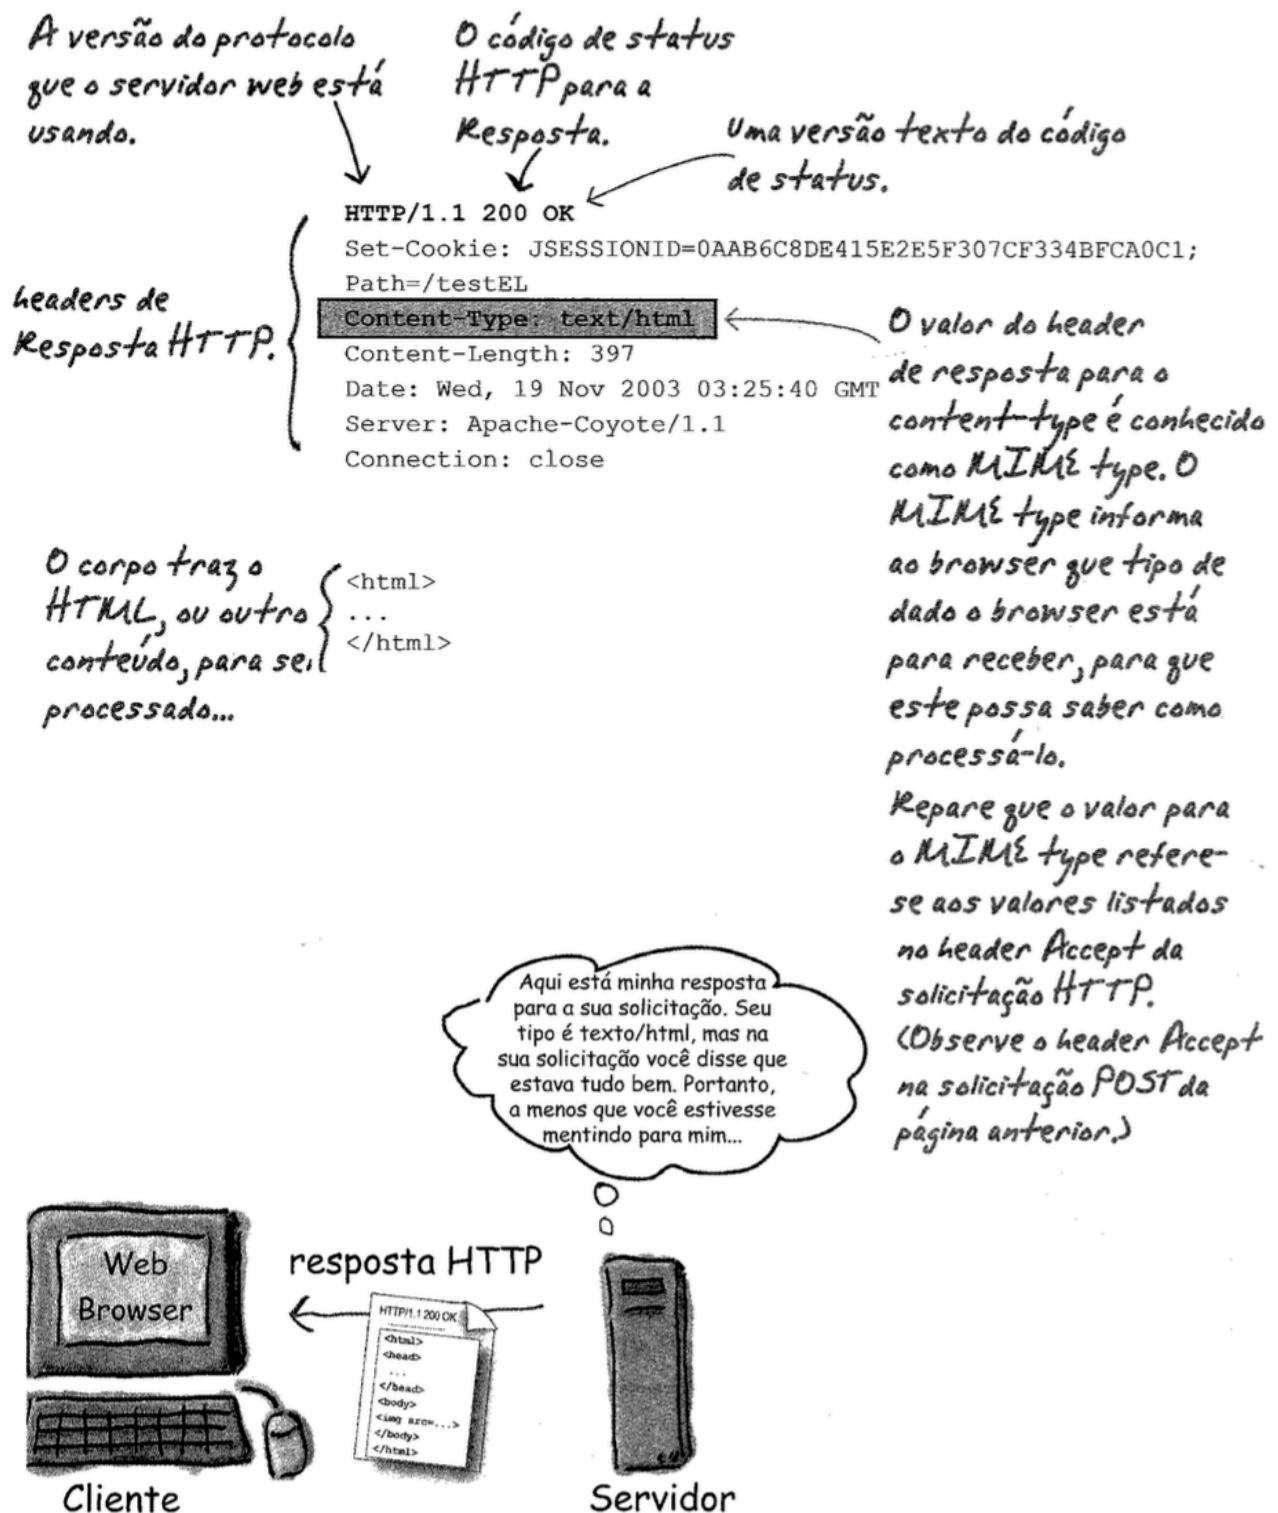 A versão do protocolo
que o servidor web está
usando.
O código de status
HTTP para a
Resposta.
Uma versão texto do código
de status.
HTTP/1.1 200 OK
Set-Cookie: JSESSIONID=0AAB6C8DE415E2E5F307CF334BFCA0C1;
Path=/testEL
Content-Type: text/html
Content-Length: 397
Date: Wed, 19 Nov 2003 03:25:40 GMT
Server: Apache-Coyote/1.1
Connection: close
headers de
Resposta HTTP.
O valor do header
de resposta para o
content-type é conhecido
como MIME type. O
MIME type informa
ao browser que tipo de
dado o browser está
para receber, para que
este possa saber como
processá-lo.
Repare que o valor para
o MIME type refere-
se aos valores listados
no header Accept da
solicitação HTTP.
(Observe o header Accept
na solicitação POST da
página anterior.)
O corpo traz o
HTML, ou outro
conteúdo, para ser
processado...
<html>
...
</html>
Aqui está minha resposta
para a sua solicitação. Seu
tipo é texto/html, mas na
sua solicitação você disse que
estava tudo bem. Portanto,
a menos que você estivesse
mentindo para mim...
Web
Browser
resposta HTTP
HTTP/1.1 200 OK
<html>
<head>
...
</head>
<body>
<img src=...>
</body>
</html>
Cliente
Servidor